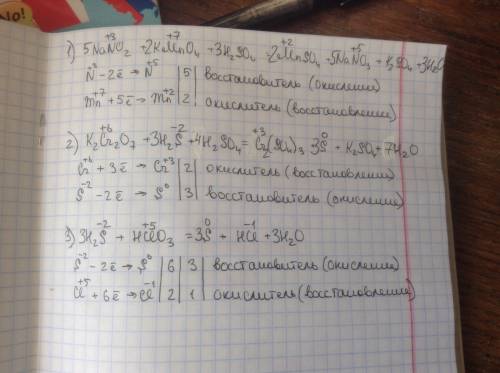 No!
1) 5NaN⁺³O₂ + 2KMn⁺⁷O₄ + 3H₂SO₄ 2Mn⁺²SO₄ 5NaN⁺⁵O₃ + K₂SO₄ + 3H₂O
N⁺³ - 2ē → N⁺⁵ | 5 | восстановитель (окислии)
Mn⁺⁷ + 5ē → Mn⁺² | 2 | окислитель (восстановлении)
2) K₂Cr₂⁺⁶O₇ + 3H₂S⁻² + 4H₂SO₄ = Cr₂⁺³(SO₄)₃ 3S⁰ + K₂SO₄ + 7H₂O
Cr⁺⁶ + 3ē → Cr⁺³ | 2 | окислитель (восстановлении)
S⁻² - 2ē → S⁰ | 3 | восстановитель (окислении)
3) 3H₂S⁻² + HCl⁺⁵O₃ = 3S⁰ + HCl⁻¹ + 3H₂O
S⁻² - 2ē → S⁰ | 6 | 3 | восстановитель (окислении)
Cl⁺⁵ + 6ē → Cl⁻¹ | 2 | 1 | окислитель (восстановлении)